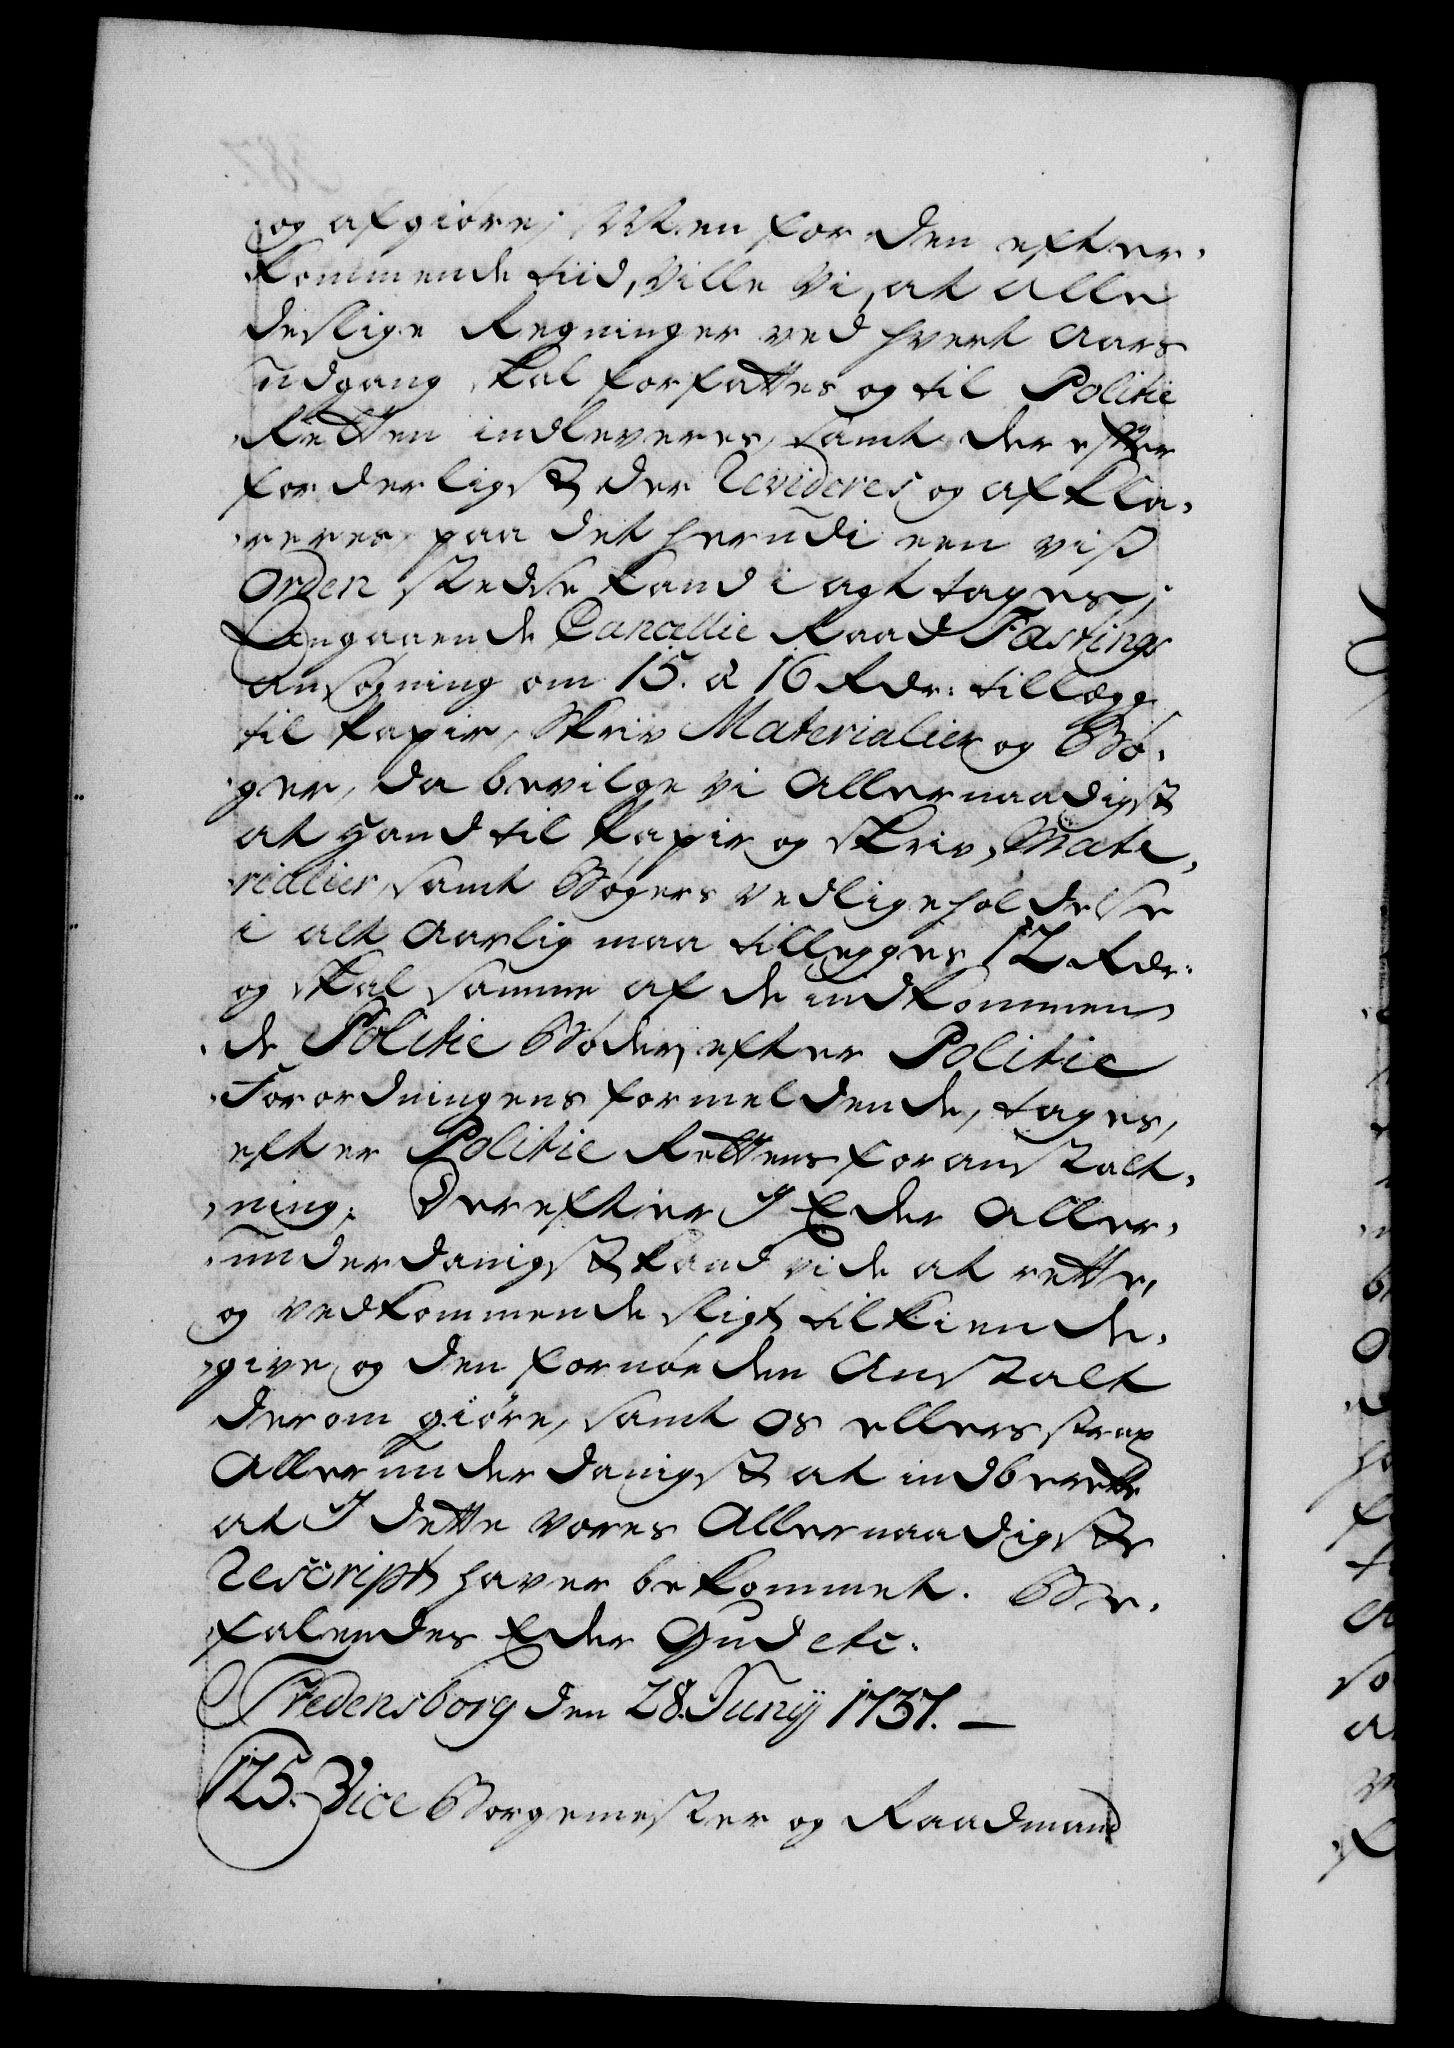 og afgiøre; Men for den efter-
kommende tiid, ville Vi, at alle
deslige Regninger ved hvert Aars
Udgang skal forfattes og til Politie
Retten indleveres, samt der efter
forderligst der Revideres og afkla-
reres, paa det herudi een viss
Orden stedse kand i agt tages;
Angaaende Cancellie Raad Fastings
Ansøgning om 15. a 16 Rdr: tillegg
til Papir, Skriv Materialier og Bø-
ger, da bevilge Vi Allernaadigst
at hand til Papir og Skriv-Mate-
rialier, samt Bøgers vedligeholdelse
i alt Aarlig maa tillegges 12 Rdr:
og skal samme af de indkommen-
de Politie Bøder, efter Politie
Forordningens formeldende, tages,
efter Politie Rettens foranstalt-
ning. Derefter I Eder Aller-
underdanigst kand vide at rette,
og vedkommende sligt tilkiende-
give, og den fornøden Anstalt
derom giøre, samt Os ellers strax
Allerunderdanigst at indberette
at I dette Vores Allernaadigste
Rescript haver bekommet. Be-
falendes Eder Gud etc.
Fredensborg den 28. Junij 1737. —
125. Vice Borgemester og Raadmand